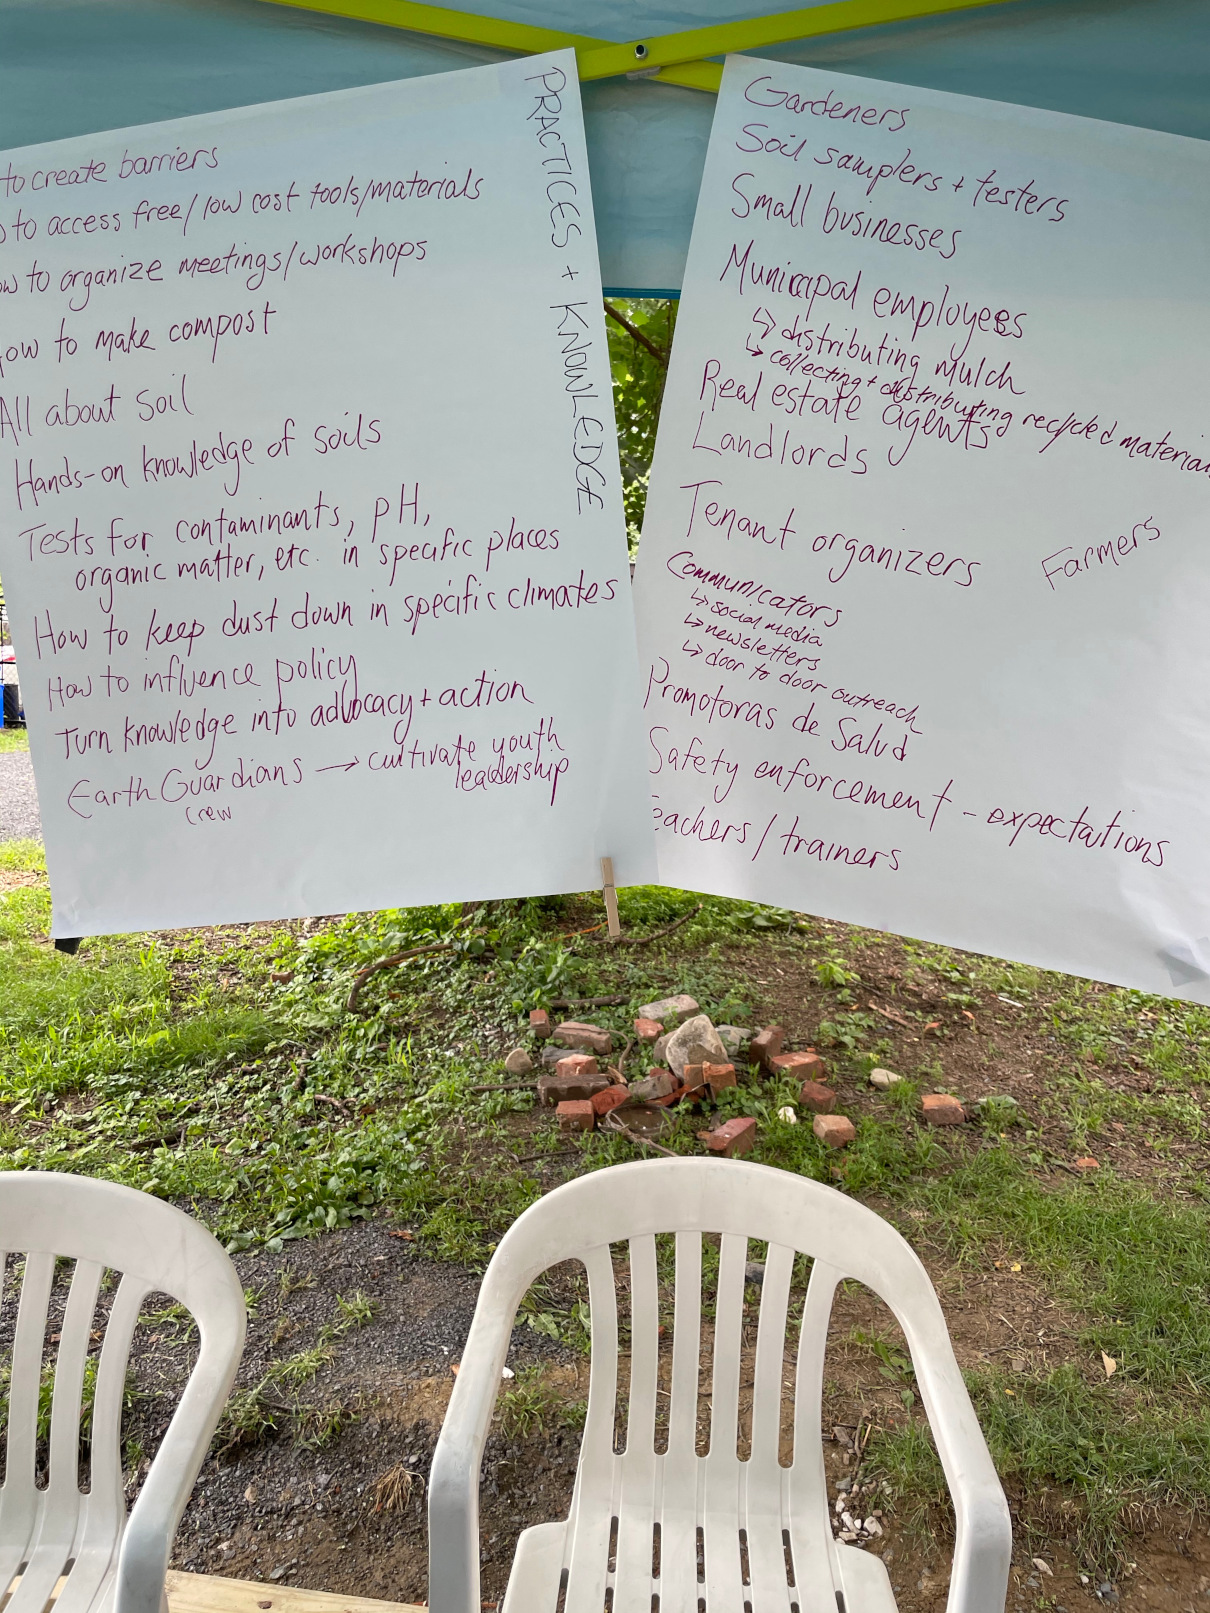 to create barriers
to access free/low cost tools/materials
to organize meetings/workshops
to make compost
All about soil
Hands-on knowledge of soils
Tests for contaminants, pH,
organic matter, etc. in specific places
How to keep dust down in specific climates
How to influence policy
Turn knowledge into advocacy + action
Earth Guardians → cultivate youth
leadership
Crew
PRACTICES + KNOWLEDGE
Gardeners
Soil samplers + testers
Small businesses
Municipal employees
↳ distributing mulch
↳ collecting + distributing recycled
Real estate agents
Landlords
Tenant organizers
Farmers
Communicators
↳ social media
↳ newsletters
↳ door to door outreach
Promotoras de Salud
Safety enforcement - expectations
eachers/trainers